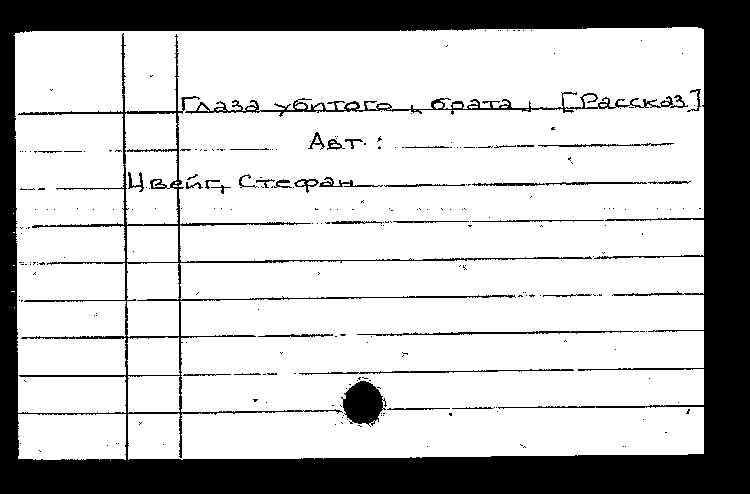 Глаза убитого, брата, [Рассказ]
Авт.:
Цвейг, Стефан